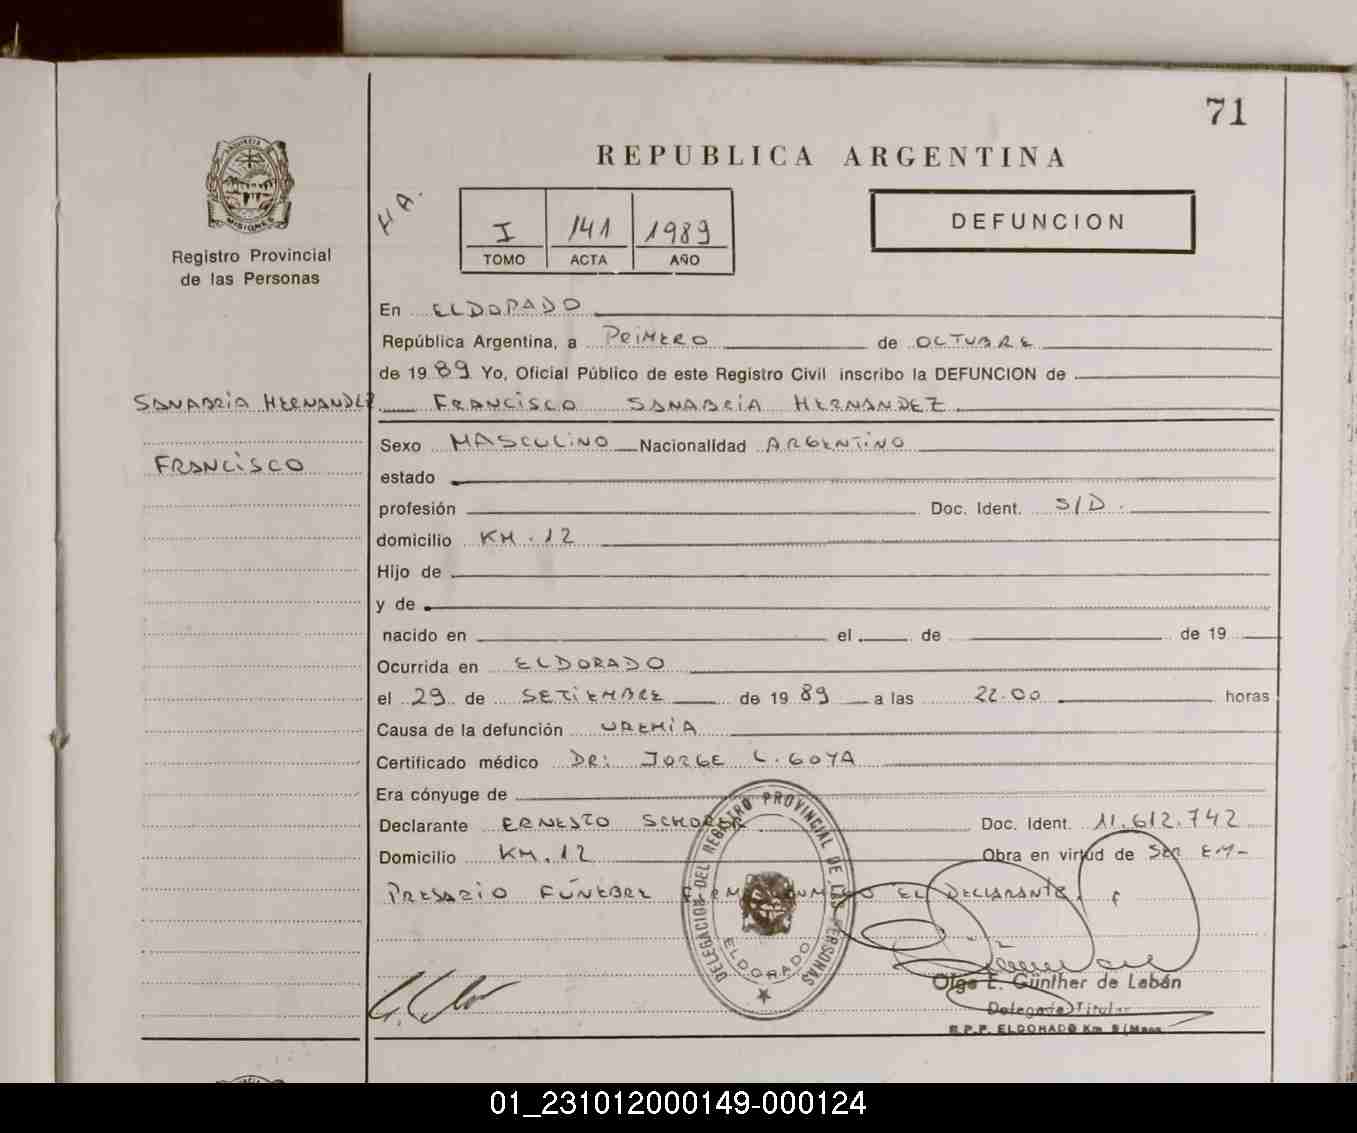 71
REPUBLICA ARGENTINA
HA.
I 141 1989
TOMO ACTA AÑO
DEFUNCION
PROVINCIA DE
MISIONES
Registro Provincial
de las Personas
En ELDORADO
República Argentina, a PRIMERO de OCTUBRE
de 1989 Yo, Oficial Público de este Registro Civil inscribo la DEFUNCION de
SANABRIA HERNANDEZ FRANCISCO SANABRIA HERNANDEZ
Sexo MASCULINO Nacionalidad ARGENTINO
FRANCISCO
estado
profesión Doc. Ident. S/D.
domicilio KM. 12
Hijo de
y de
nacido en el de de 19
Ocurrida en ELDORADO
el 29 de SETIEMBRE de 1989 a las 22.00 horas
Causa de la defunción UREMIA
Certificado médico DR: JORGE L. GOYA
Era cónyuge de
Declarante ERNESTO Doc. Ident. 11.612.742
Domicilio KM. 12 Obra en virtud de SER EM-
PRESARIO FÚNEBRE FIRMANDO EL DECLARANTE.
DELEGACION DEL REGISTRO PROVINCIAL DE LAS PERSONAS
ELDORADO
Olga E. Günther de Lebán
Delegada Titular
R.P.P. ELDORADO Km 9 (Mnes
01_231012000149-000124